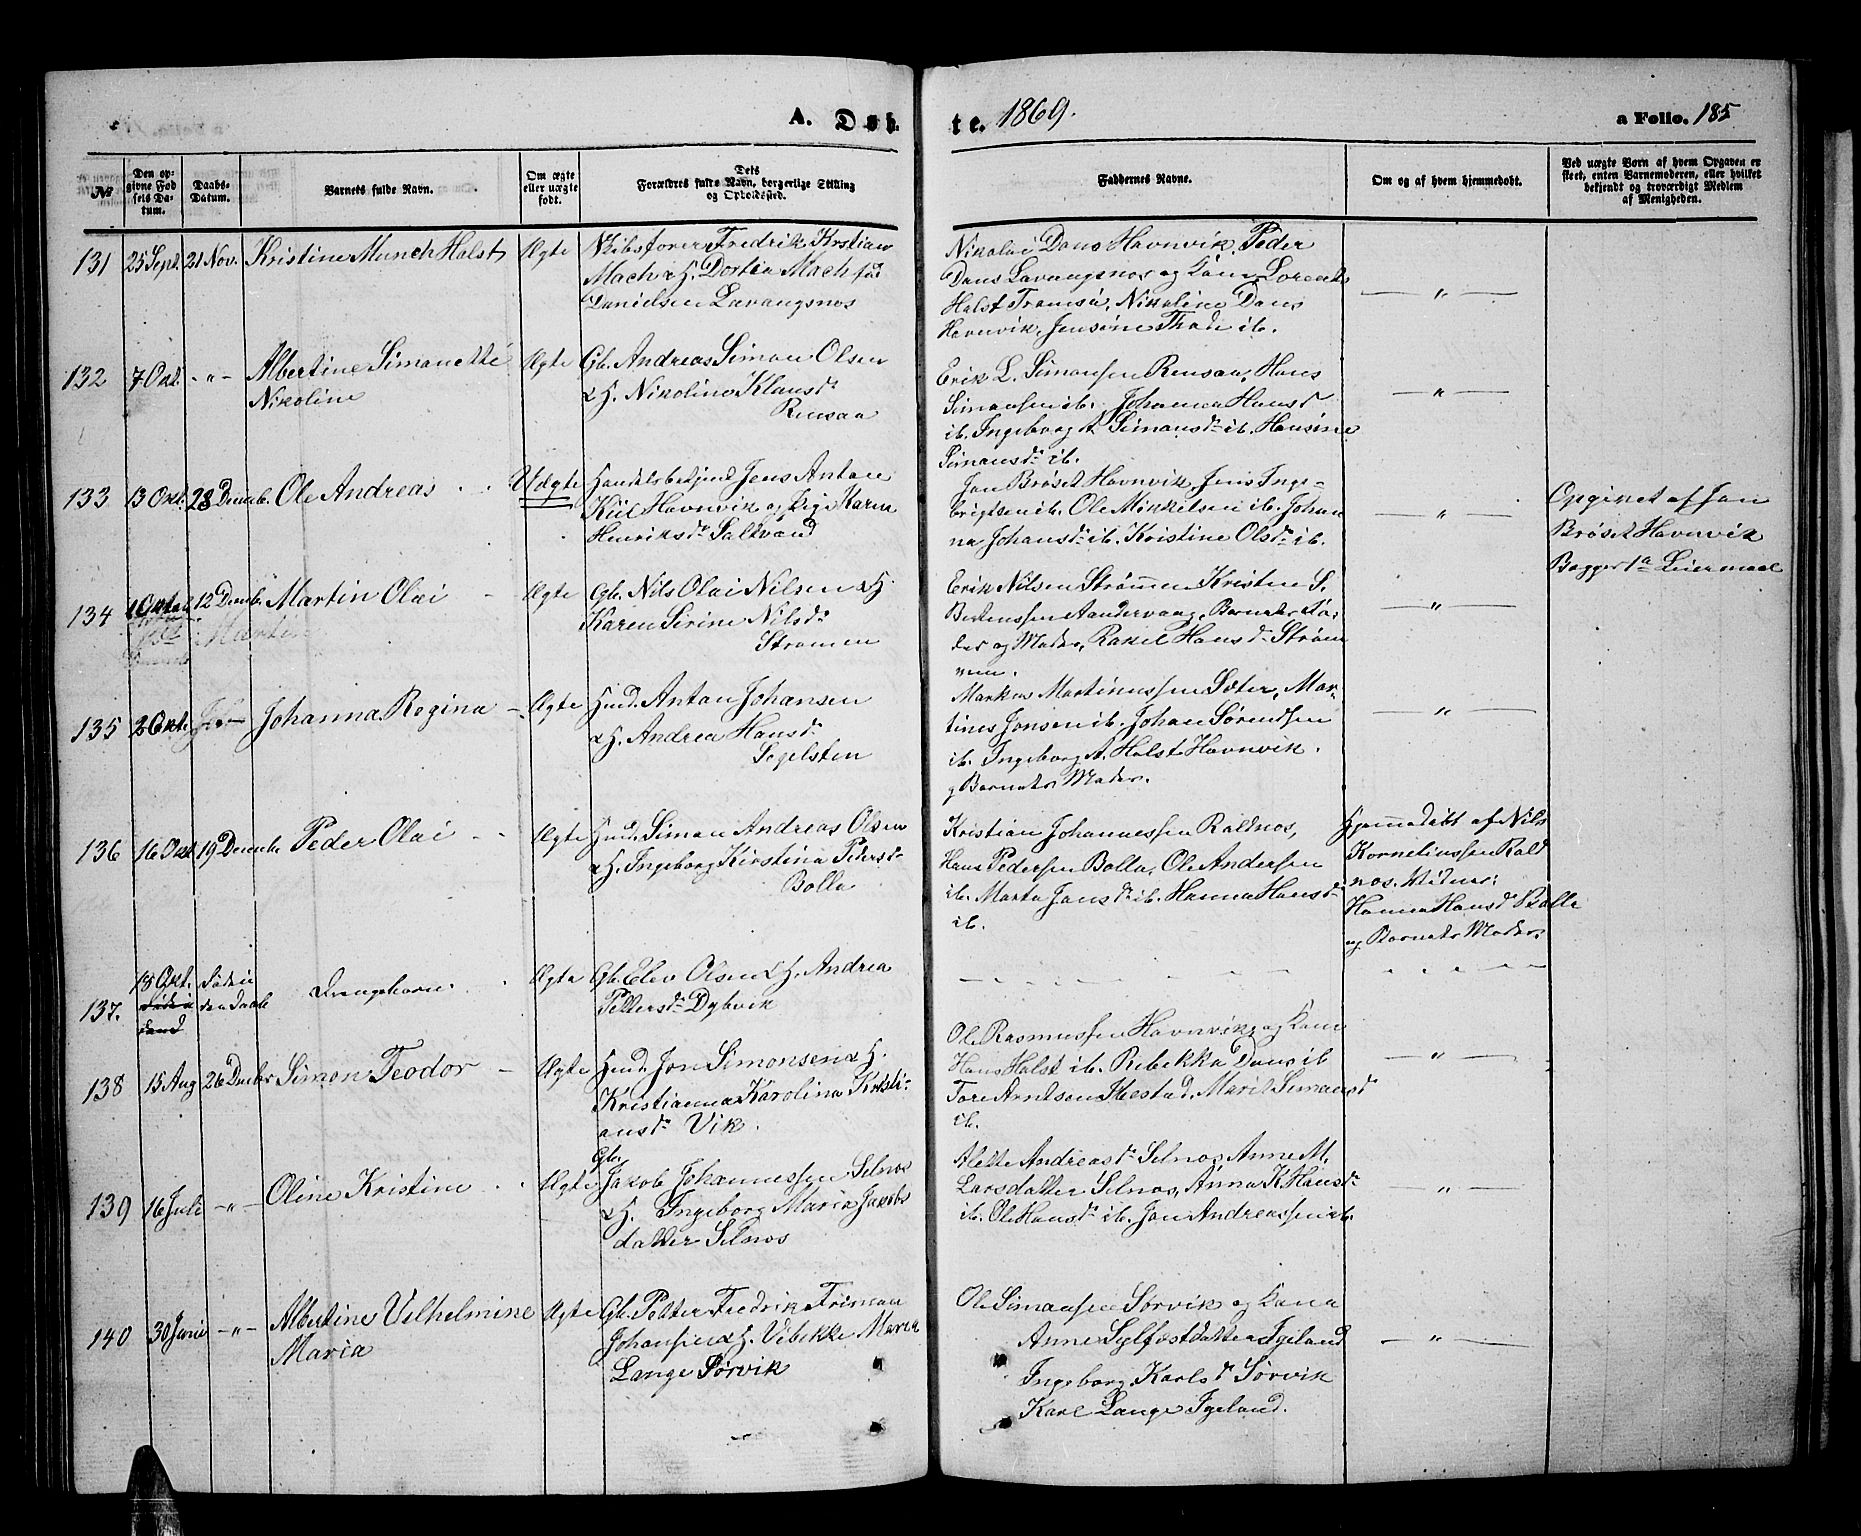 A. Døb
te. 1869.
a Folio. 185
No
Den op-
givne Fød
sels Da-
tum.
Daabs-
Datum.
Barnets fulde Navn.
Om ægte
eller uægte
født.
Dets
Forældres fulde Navn, borgerlige Stilling
og Opholdssted.
Faddernes Navne.
Om og af hvem hjemmedøbt.
Ved uægte Børn af hvem Opgaven er
skeet, enten Barnemoderen, eller hvilket
bekjendt og troværdigt Medlem
af Menigheden.
131 25 Sept. 21 Nov. Kristine Munch Holst Ægte Skibsfører Fredrik Kristian
Mach & H. Dortia Mach fød
Danielsen Lavangsnos
Nikolai Dans Havnvik, Peder
Dans Lavangsnos og Kone, Lorents
Holst Tromsö, Nikoline Dans
Havnvik, Jensine Thode ib.
— " —
132 7 Okt. - " - Albertine Simonette
Nikoline
Ægte Gb. Andreas Simon Olsen
& H. Nikoline Klausd.
Rensaa
Erik L. Simonsen Rensaa, Hans
Simonsen ib. Johanna Hansd
ib. Ingeborg A Simonsd. ib. Hansine
Simonsd. ib.
— " —
133 13 Okt. 28 Decmb. Ole Andreas Uægte Handelsbetjent Jens Anton
Kiil Havnvik og Pige Karen
Henriksd. Saltvand
Jon Brøset Havnvik, Jens Inge-
brigtsen ib. Ole Mikkelsen ib. Johan
na Johansd. ib. Kristine Olsd. ib.
— " —
Opgivet af Jon
Brøset Havnvik
Begges 1te Leiermaal
134 12 Decmbr. Martin Olai Ægte Gb. Nils Olai Nilsen & H.
Karen Sirine Nilsd.
Strømen
Martin
Erik Nilsen Strømmen Kristen S.
Berntsen Aandervaag, Barnets Fa-
der og Moder, Rakel Hansd. Strøm
men.
— " —
135 2 Okt. Johanna Regina Ægte Hmd. Anton Johansen
& H. Andrea Hansd.
Segelsten
Markus Martinussen Sæter, Mar-
tines Jonsen ib. Johan Sørendsen
ib. Ingeborg A. Holst Havnvik.
g Barnets Moder.
— " —
136 16 Okt 19 Decmbe Peder Olai Ægte Hmd. Simon Andreas Olsen
& H. Ingeborg Kirstina Pedersd.
Bolla
Kristian Johannessen Roldnos,
Hans Pedersen Bolla, Ole Andersen
ib. Marta Jonsd. ib. Hanna Hansd.
ib.
Hjemmedøbt af Nils
Korneliussen Rold
nos. Vidner:
Hanna Hansd Bolle
og Barnets Moder.
137. 18 Okt. Død u
den Daab
Drengebarn. Ægte Gb. Elev Olsen & H. Andrea
Pettersd. Dybvik
138 15 Aug 26 Decbr Simon Teodor Ægte Hmd. Jon Simonsen & H.
Kristianna Karolina Kristi-
ansd. Vik.
Ole Rasmussen Havnvik og Kone
Hans Holst ib. Rebekka Dans ib
Tore Arntsen Ibestad, Marit Simonsd
ib.
— " —
139 16 Juli - " - Oline Kristine Ægte Gb.
Jakob Johannessen Selnos
& H. Ingeborg Maria Jakobs
datter Selnos
Alette Andreasd. Selnos, Anne M.
Larsdatter Selnos, Anna K. Hansd.
ib. Ole Hansd. ib. Jon Andreassen ib.
— " —
140 30 Juni - " - Albertine Vilhelmine
Maria
Ægte Gb. Petter Fredrik Friman
Johansen & H. Vibekke Maria
Lange Sørvik
Ole Simonsen Sørvik og Kona
Anne Sylfestdatter Igeland
Ingeborg Karlsd. Sørvik
Karl Lange Igeland.
— " —